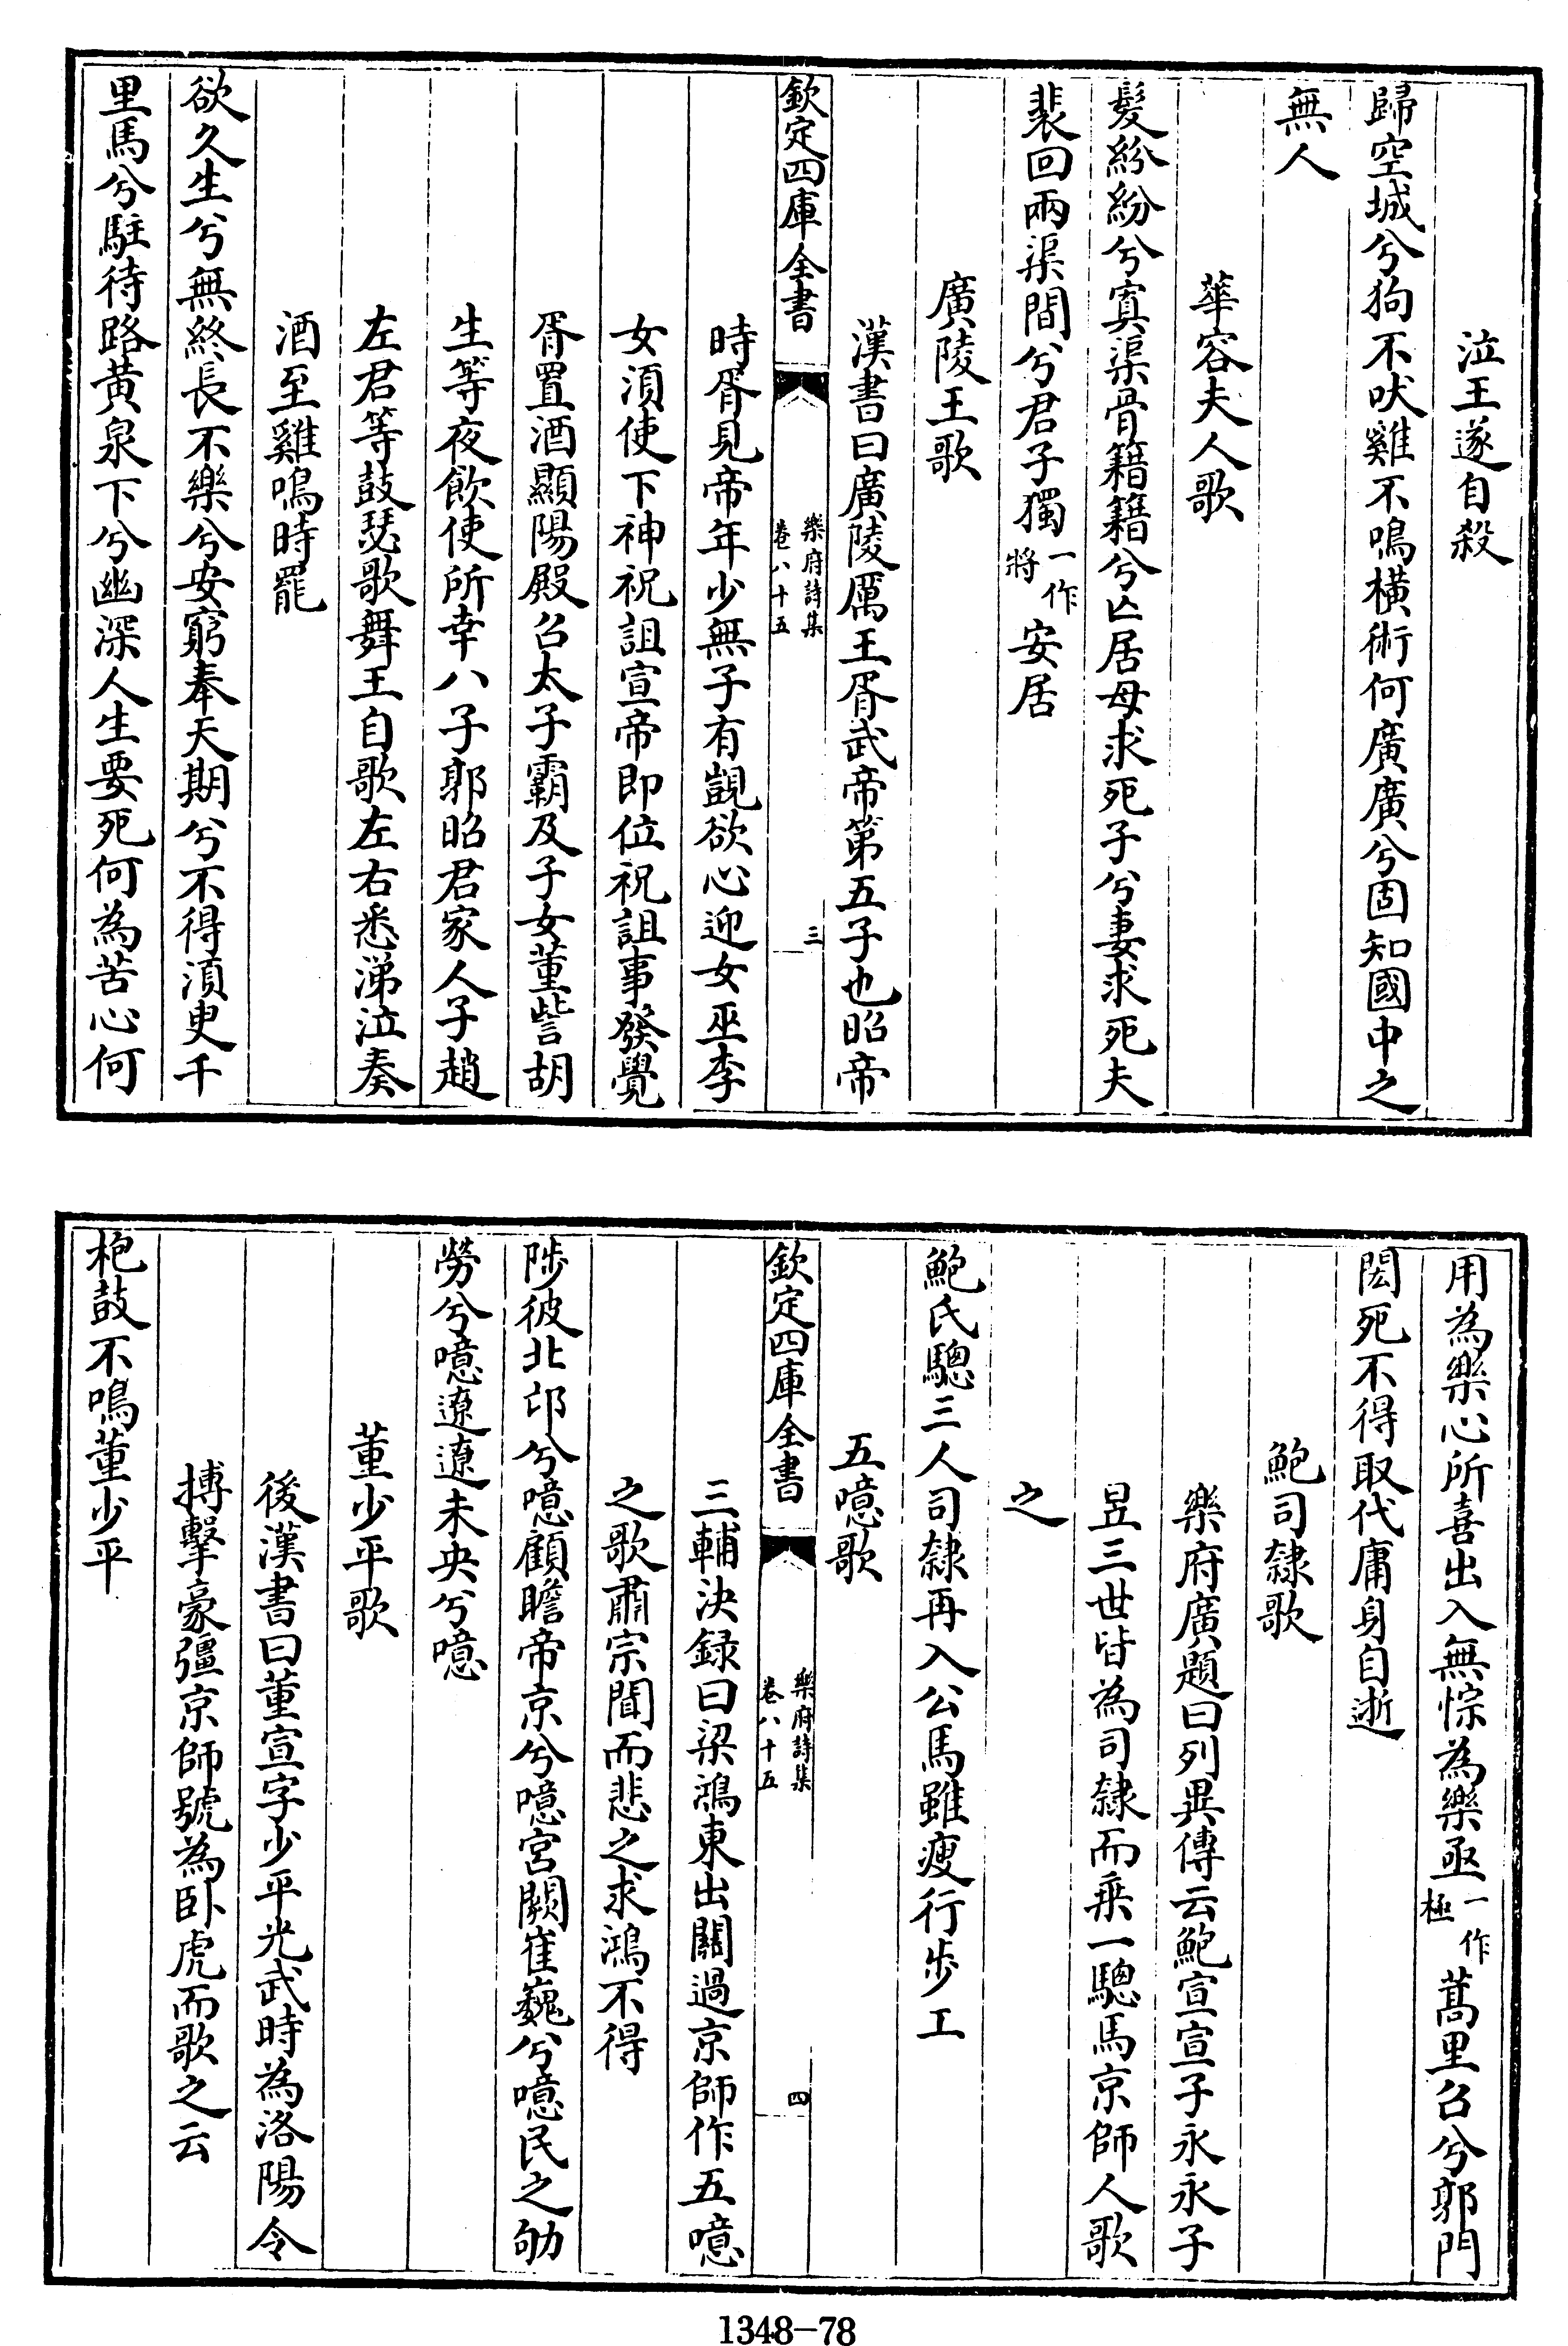 泣王遂自殺
歸空城兮狗不吠雞不鳴橫術何廣廣兮固知國中之
無人
華容夫人歌
髮紛紛兮寘渠骨籍籍兮亡居母求死子兮妻求死夫
裴回兩渠間兮君子獨一作將安居
廣陵王歌
漢書曰廣陵厲王胥武帝第五子也昭帝
欽定四庫全書
樂府詩集
卷八十五
三
時胥見帝年少無子有覬欲心迎女巫李
女須使下神祝詛宣帝即位祝詛事發覺
胥置酒顯陽殿召太子霸及子女董訾胡
生等夜飲使所幸八子郭昭君家人子趙
左君等鼓瑟歌舞王自歌左右悉涕泣奏
酒至雞鳴時罷
欲久生兮無終長不樂兮安窮奉天期兮不得須臾千
里馬兮駐待路黃泉下兮幽深人生要死何為苦心何
用為樂心所喜出入無悰為樂亟一作極蒿里召兮郭門
閱死不得取代庸身自逝
鮑司隸歌
樂府廣題曰列異傳云鮑宣宣子永永子
昱三世皆為司隸而乘一驄馬京師人歌
之
鮑氏驄三人司隸再入公馬雖瘦行步工
五噫歌
欽定四庫全書
樂府詩集
卷八十五
四
三輔決録曰梁鴻東出關過京師作五噫
之歌肅宗聞而悲之求鴻不得
陟彼北邙兮噫顧瞻帝京兮噫宮闕崔巍兮噫民之劬
勞兮噫遼遼未央兮噫
董少平歌
後漢書曰董宣字少平光武時為洛陽令
搏擊豪彊京師號為臥虎而歌之云
枹鼓不鳴董少平
1348-78